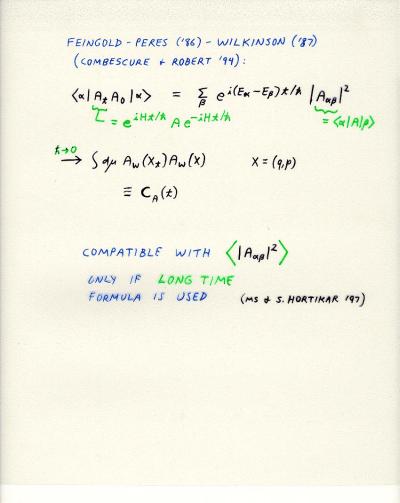 FEINGOLD - PERES ('86) - WILKINSON ('87)
(COMBESCURE + ROBERT '94):
⟨α|A_t A_0|α⟩ = Σ_β e^{i(E_α-E_β)t/ħ} |A_{αβ}|²
= e^{iHt/ħ} A e^{-iHt/ħ} = ⟨α|A|β⟩
ħ→0 → ∫dμ A_W(X_t) A_W(X) X = (q,p)
≡ C_A(t)
COMPATIBLE WITH ⟨|A_{αβ}|²⟩
ONLY IF LONG TIME
FORMULA IS USED (MS & S. HORTIKAR '97)